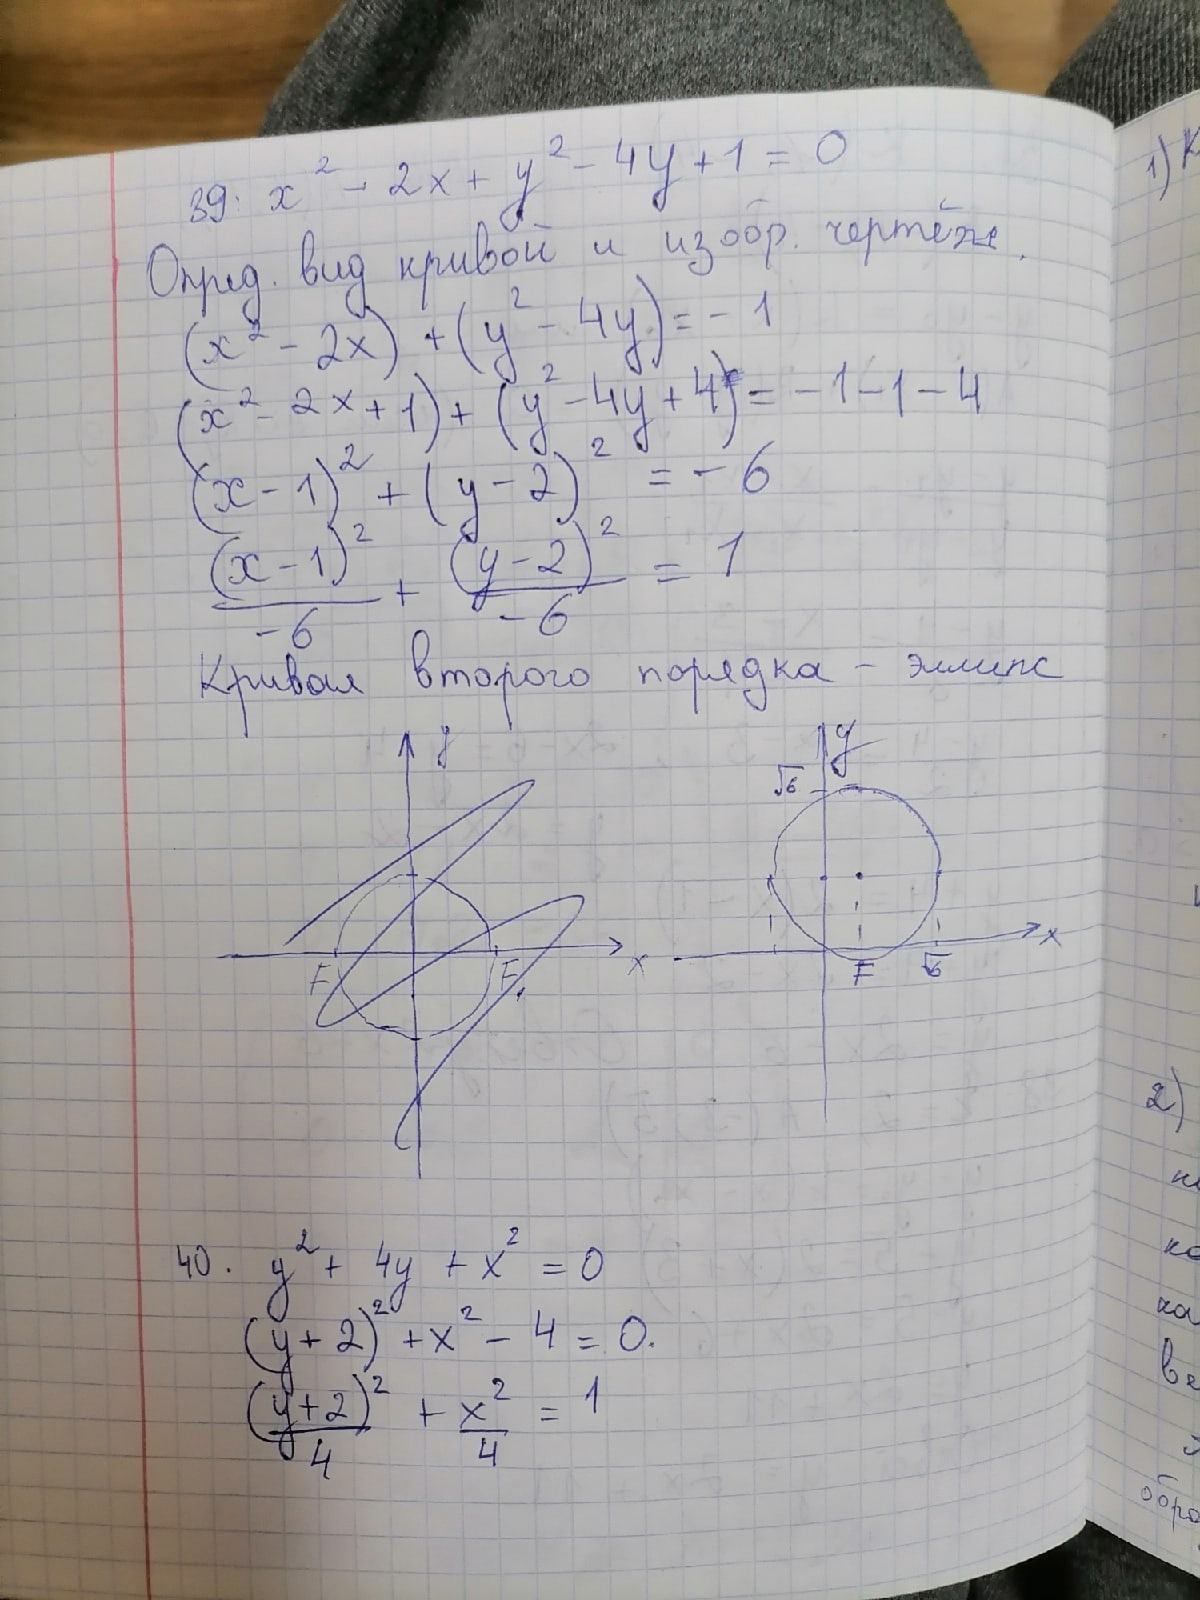 39. x² - 2x + y² - 4y + 1 = 0
Опред. вид кривой и изобр. чертёж.
(x² - 2x) + (y² - 4y) = - 1
(x² - 2x + 1) + (y² - 4y + 4) = - 1 - 1 - 4
(x - 1)² + (y - 2)² = - 6
(x - 1)²/-6 + (y - 2)²/-6 = 1
Кривая второго порядка - эллипс
y
F F x
y
√6
F √6 x
40. y² + 4y + x² = 0
(y + 2)² + x² - 4 = 0.
(y + 2)²/4 + x²/4 = 1
1)
2)
обра